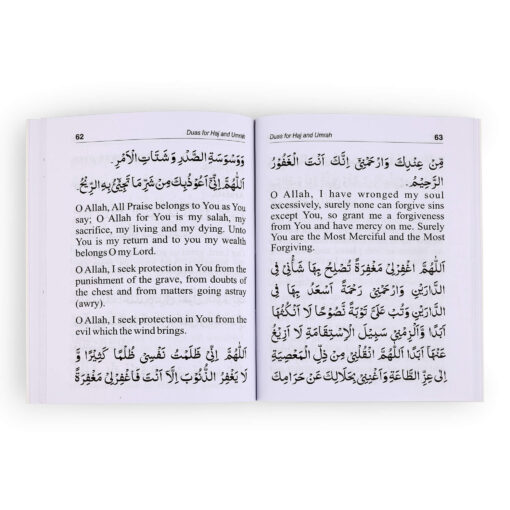 62
Duas for Haj and Umrah
وَوَسْوَسَةِ الصَّدْرِ وَشَتَاتِ الْاَمْرِ
اَللّٰهُمَّ اِنِّىْ اَعُوْذُبِكَ مِنْ شَرِّ مَا تَجِىْٓءُ بِهِ الرِّيْحُ
O Allah, All Praise belongs to You as You
say; O Allah for You is my salah, my
sacrifice, my living and my dying. Unto
You is my return and to you my wealth
belongs O my Lord.
O Allah, I seek protection in You from the
punishment of the grave, from doubts of
the chest and from matters going astray
(awry).
O Allah, I seek protection in You from the
evil which the wind brings.
اَللّٰهُمَّ اِنِّىْ ظَلَمْتُ نَفْسِىْ ظُلْمًا كَثِيْرًا وَّ
لَا يَغْفِرُ الذُّنُوْبَ اِلَّا اَنْتَ فَاغْفِرْلِىْ مَغْفِرَةً
Duas for Haj and Umrah
63
مِّنْ عِنْدِكَ وَارْحَمْنِىْ اِنَّكَ اَنْتَ الْغَفُوْرُ
الرَّحِيْمُ
O Allah, I have wronged my soul
excessively, surely none can forgive sins
except You, so grant me a forgiveness
from You and have mercy on me. Surely
You are the Most Merciful and the Most
Forgiving.
اَللّٰهُمَّ اغْفِرْلِىْ مَغْفِرَةً تُصْلِحُ بِهَا شَأْنِىْ فِى
الدَّارَيْنِ وَارْحَمْنِىْ رَحْمَةً اَسْعَدُ بِهَا فِى
الدَّارَيْنِ وَتُبْ عَلَىَّ تَوْبَةً نَّصُوْحًا لَا اَنْكُثُهَا
اَبَدًا وَّاَلْزِمْنِىْ سَبِيْلَ الْاِسْتِقَامَةِ لَا اَزِيْغُ
عَنْهَا اَبَدًا اَللّٰهُمَّ انْقُلْنِىْ مِنْ ذُلِّ الْمَعْصِيَةِ
اِلٰى عِزِّ الطَّاعَةِ وَاَغْنِنِىْ بِحَلَالِكَ عَنْ حَرَامِكَ